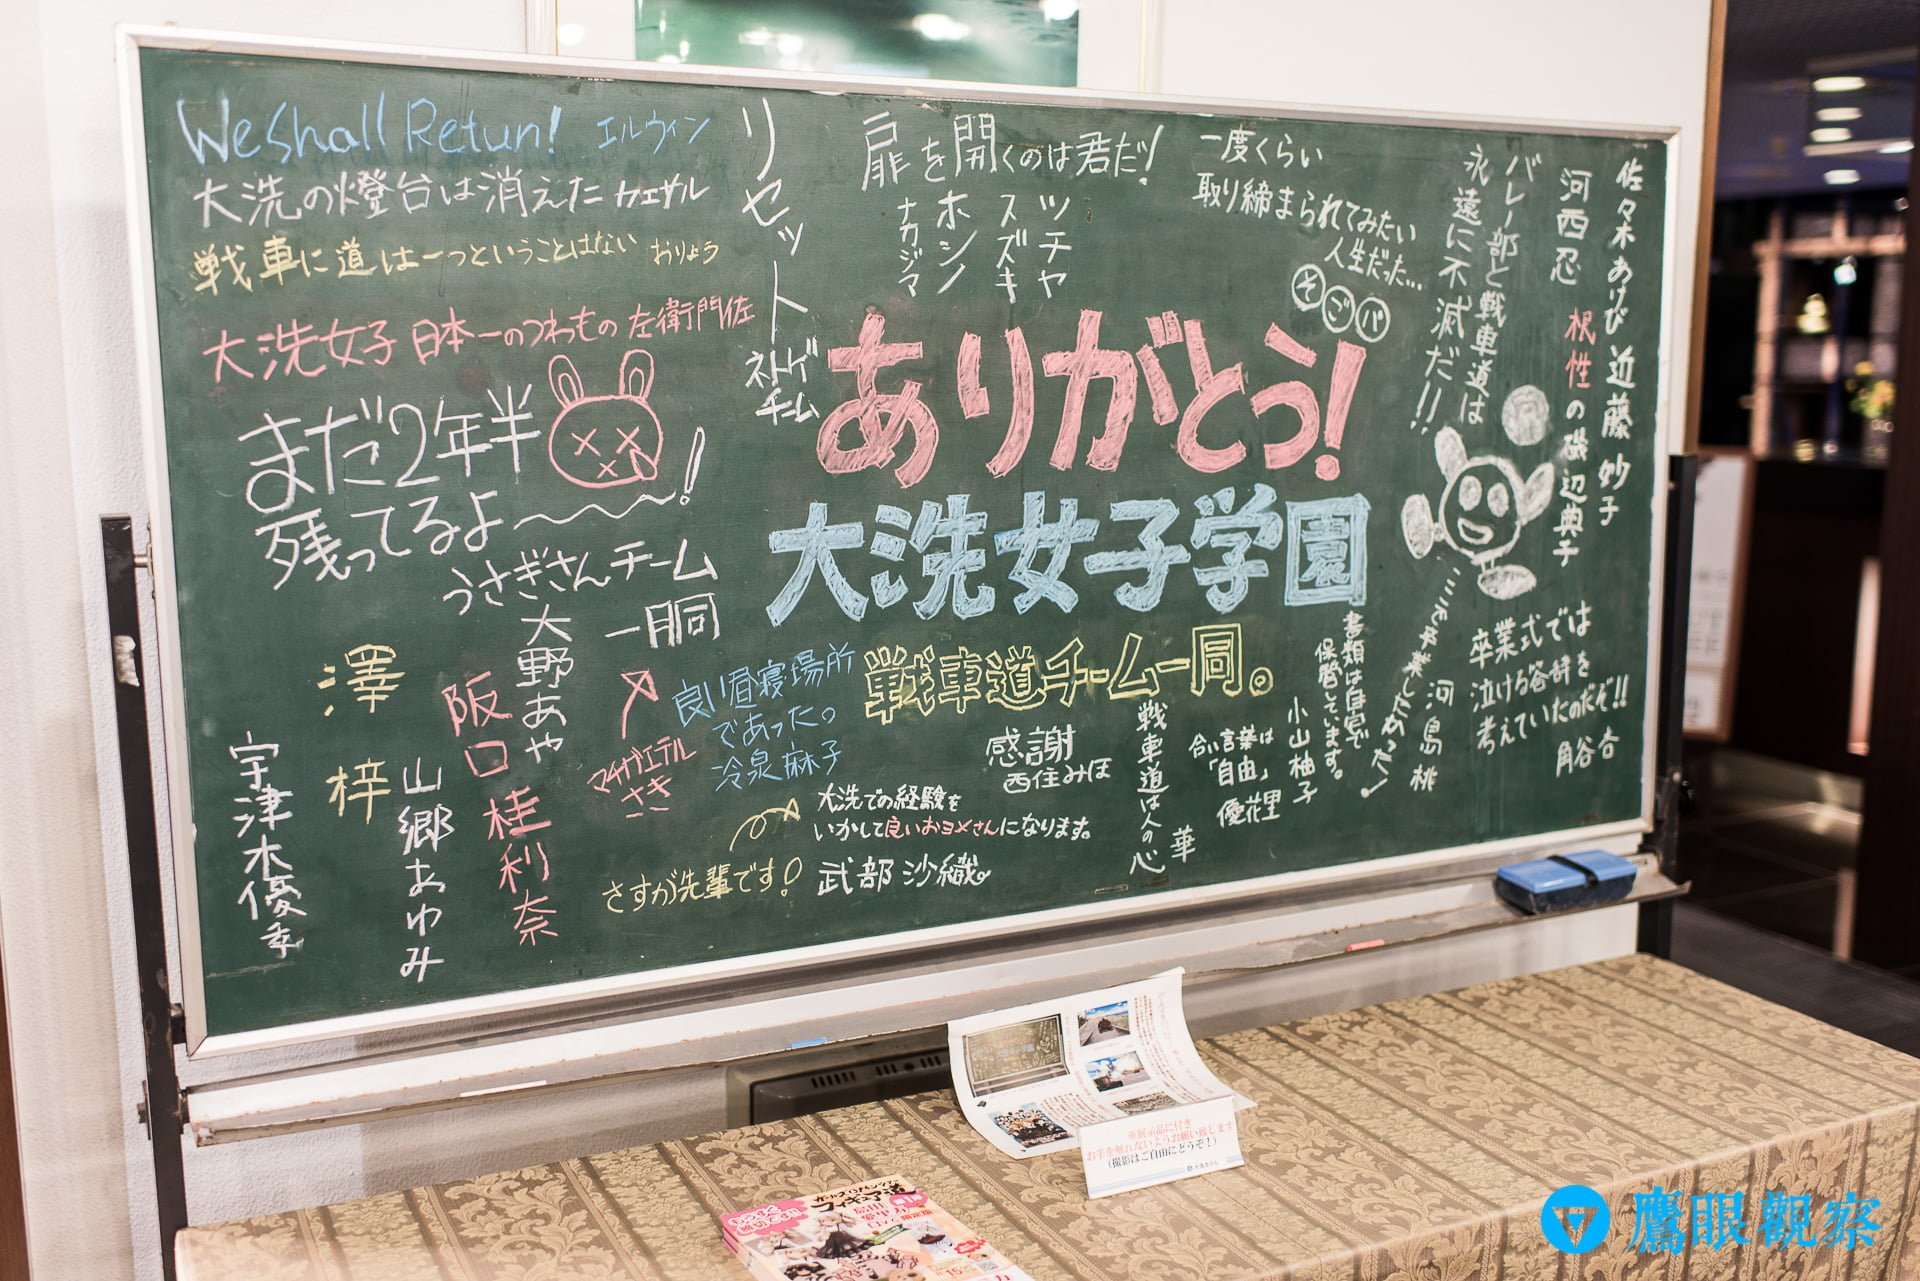 WeShall Retun! エルウィン
大洗の燈台は消えた カエサル
戦車に道は一つということはない おりょう
大洗女子 日本一のつわもの 左衛門佐
まだ2年半
残ってるよ〜〜〜!
うさぎさんチーム
一同
大野あや
阪口桂利奈
澤 梓
山郷あゆみ
宇津木優季
マチガエテル
さき
リセット
ネトゲ
チーム
扉を開くのは君だ!
ツチヤ
スズキ
ホシノ
ナカジマ
一度くらい
取り締まられてみたい
人生だった…
そど子
ありがとう!
大洗女子学園
戦車道チーム一同。
佐々木あけび 近藤妙子
河西忍 根性の磯辺典子
バレー部と戦車道は
永遠に不滅だ!!
良い昼寝場所
であった。
冷泉麻子
感謝
西住みほ
大洗での経験を
いかして良いおヨメさんになります。
武部 沙織
さすが先輩です!
戦車道は人の心
華
合い言葉は
「自由」
優花里
書類は自宅で
保管しています。
小山柚子
ここで卒業したかった!
河島 桃
卒業式では
泣ける答辞を
考えていたのだぞ!!
角谷杏
※展示品に付き
お手を触れないようお願い致します
(撮影はご自由にどうぞ!)
鷹眼觀察